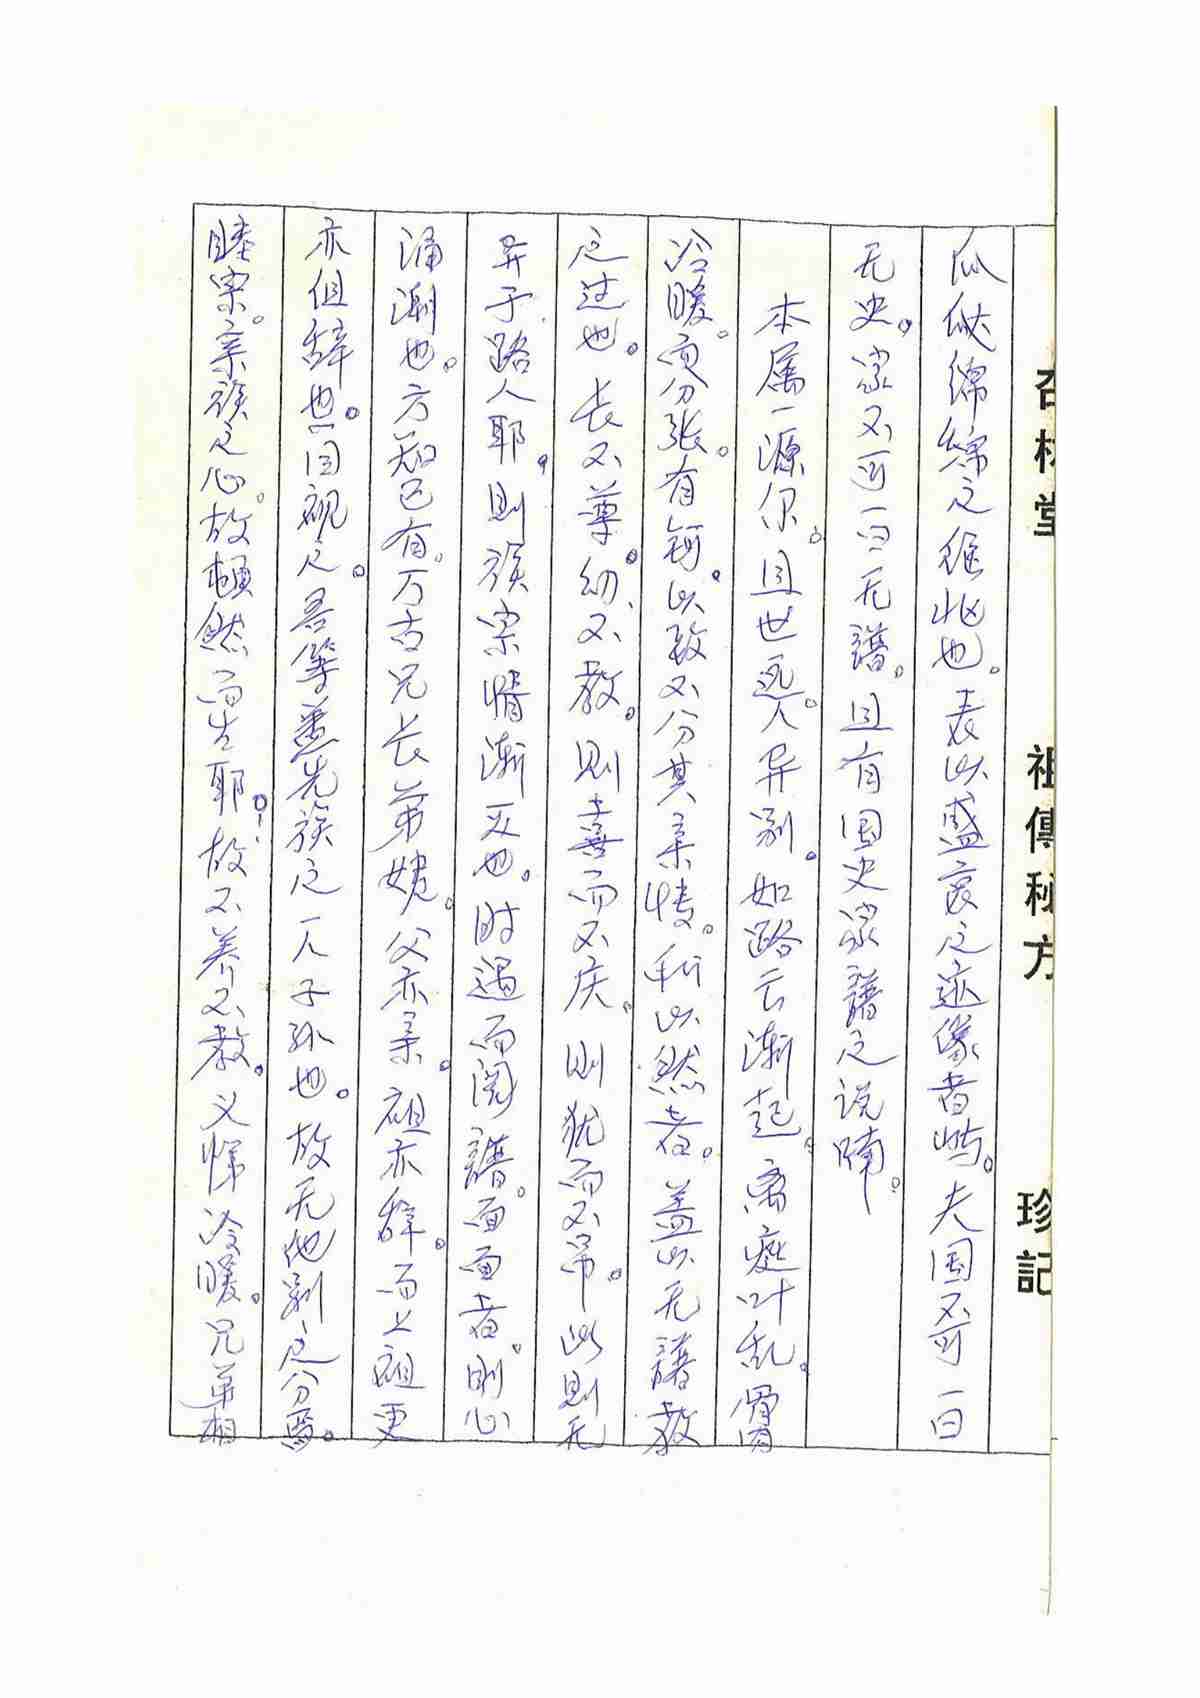 杏林堂 祖傳秘方 珍記
瓜瓞綿綿之继兆也。表以盛衰之迹像者屿。夫国不可一曰
无史。家不可一曰无譜。且有国史家譜之说喃。
本属一源尔。且世远。人异别。如路云漸起。离庭叶乱。骨肉
冷暖。而分张。有钶。以致不分其亲情。所以然者。盖以无譜教
之过也。长不尊。幼不教。则喜而不庆。则犹而不吊。此则无
异于路人耶。则族宗情渐灭也。时遇而阅譜。面面者。则心
涌潮也。方知已有。万古兄长弟媿。父亦亲。祖亦辞。而上祖更
亦但辞也。回视之。吾等盡先族之一人子孙也。故无他别之分焉。
睦宗。亲族之心。故頓然而生耶。故不养不教。义悌冷暖。兄弟相